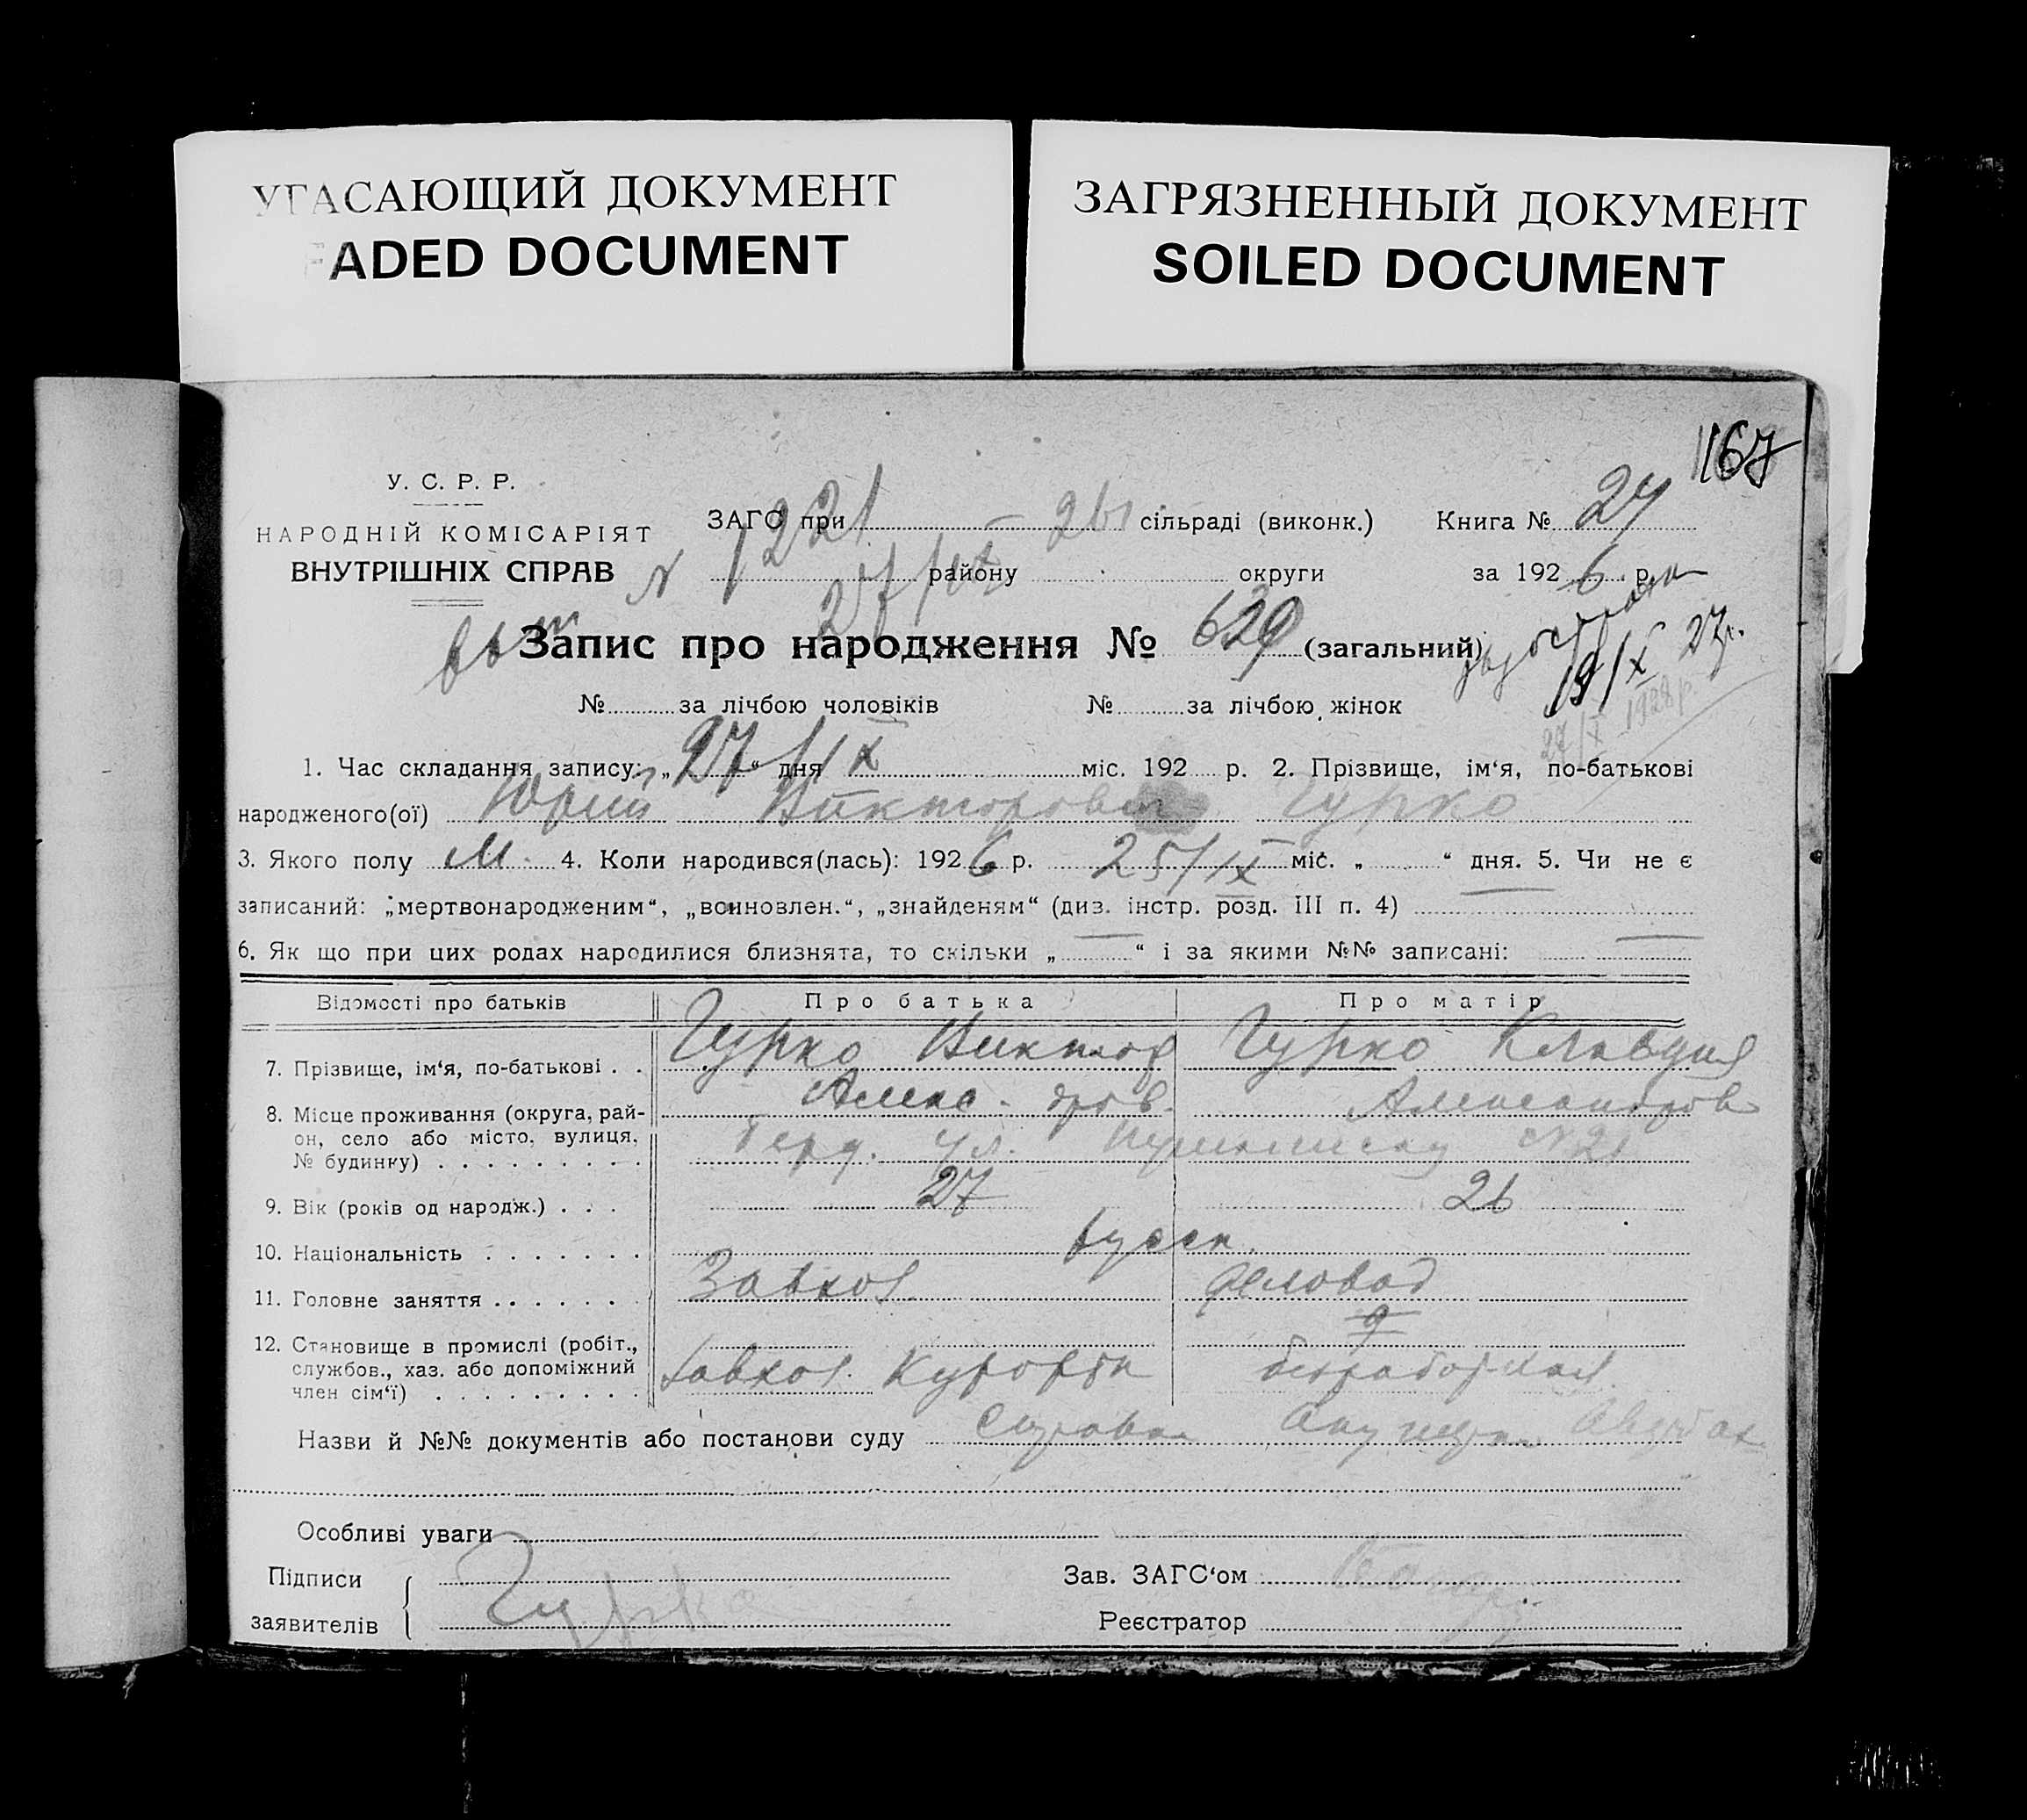 УГАСАЮЩИЙ ДОКУМЕНТ
FADED DOCUMENT
ЗАГРЯЗНЕННЫЙ ДОКУМЕНТ
SOILED DOCUMENT
167
У. С. Р. Р.
НАРОДНІЙ КОМІСАРІЯТ
ВНУТРІШНІХ СПРАВ
ЗАГС при сільраді (виконк.) Книга № 27
N 1221 - 26
району округи за 1926 р.
27/IX
Запис про народження № 629 (загальний)
19/X 27г.
27/X 1928 р.
№ за лічбою чоловіків № за лічбою жінок
1. Час складання запису: „27“ дня IX міс. 192 р. 2. Прізвище, ім‘я, по-батькові
народженого(ої) Юрий Викторович Гурко
3. Якого полу М. 4. Коли народився(лась): 1926 р. 25/IX міс. „ “ дня. 5. Чи не є
записаний: „мертвонародженим“, „воиновлен.“, „знайденям“ (диз. інстр. розд. III п. 4)
6. Як що при цих родах народилися близнята, то скільки „ “ і за якими №№ записані:
Відомості про батьків Про батька Про матір
7. Прізвище, ім‘я, по-батькові . . Гурко Виктор Гурко Клавдия
Алекс-дров. Александров
8. Місце проживання (округа, рай-
он, село або місто, вулиця,
№ будинку) . . . . . . . . . Берд. ул. №21
9. Вік (років од народж.) . . . 27 26
10. Національність . . . . . . . русск.
11. Головне заняття . . . . . . . Завхоз. деловод
9
12. Становище в промислі (робіт.,
службов., хаз. або допоміжний
член сім‘ї) . . . . . . . . . Завхоз. Курорта безработная.
Назви й №№ документів або постанови суду справка Акушерки
Особливі уваги
Підписи
заявителів Гурко
Зав. ЗАГС‘ом
Реєстратор